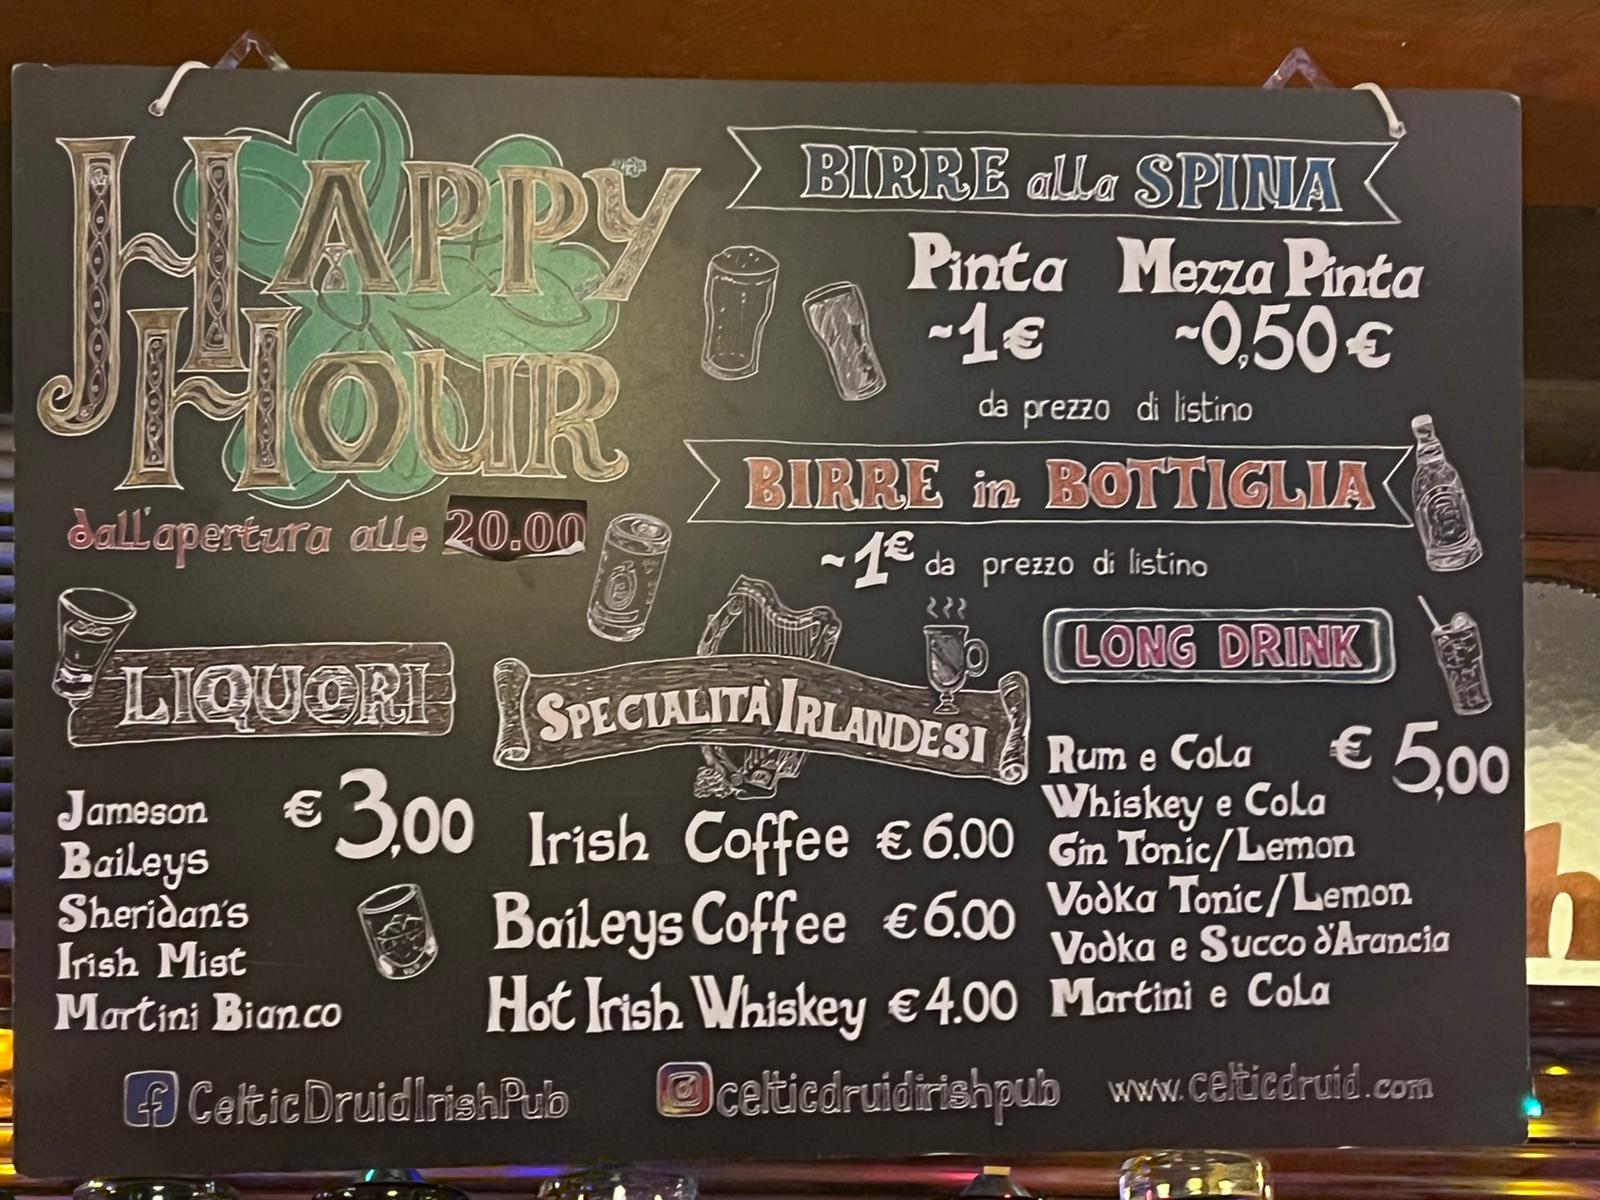 HAPPY
HOUR
dall'apertura alle 20.00
BIRRE alla SPINA
Pinta Mezza Pinta
~1€ ~0,50€
da prezzo di listino
BIRRE in BOTTIGLIA
~1€ da prezzo di listino
LIQUORI
€ 3,00
Jameson
Baileys
Sheridan's
Irish Mist
Martini Bianco
SPECIALITÀ IRLANDESI
Irish Coffee € 6.00
Baileys Coffee € 6.00
Hot Irish Whiskey € 4.00
LONG DRINK
Rum e Cola € 5,00
Whiskey e Cola
Gin Tonic/Lemon
Vodka Tonic/Lemon
Vodka e Succo d'Arancia
Martini e Cola
f CelticDruidIrishPub
celticdruidirishpub
www.celticdruid.com